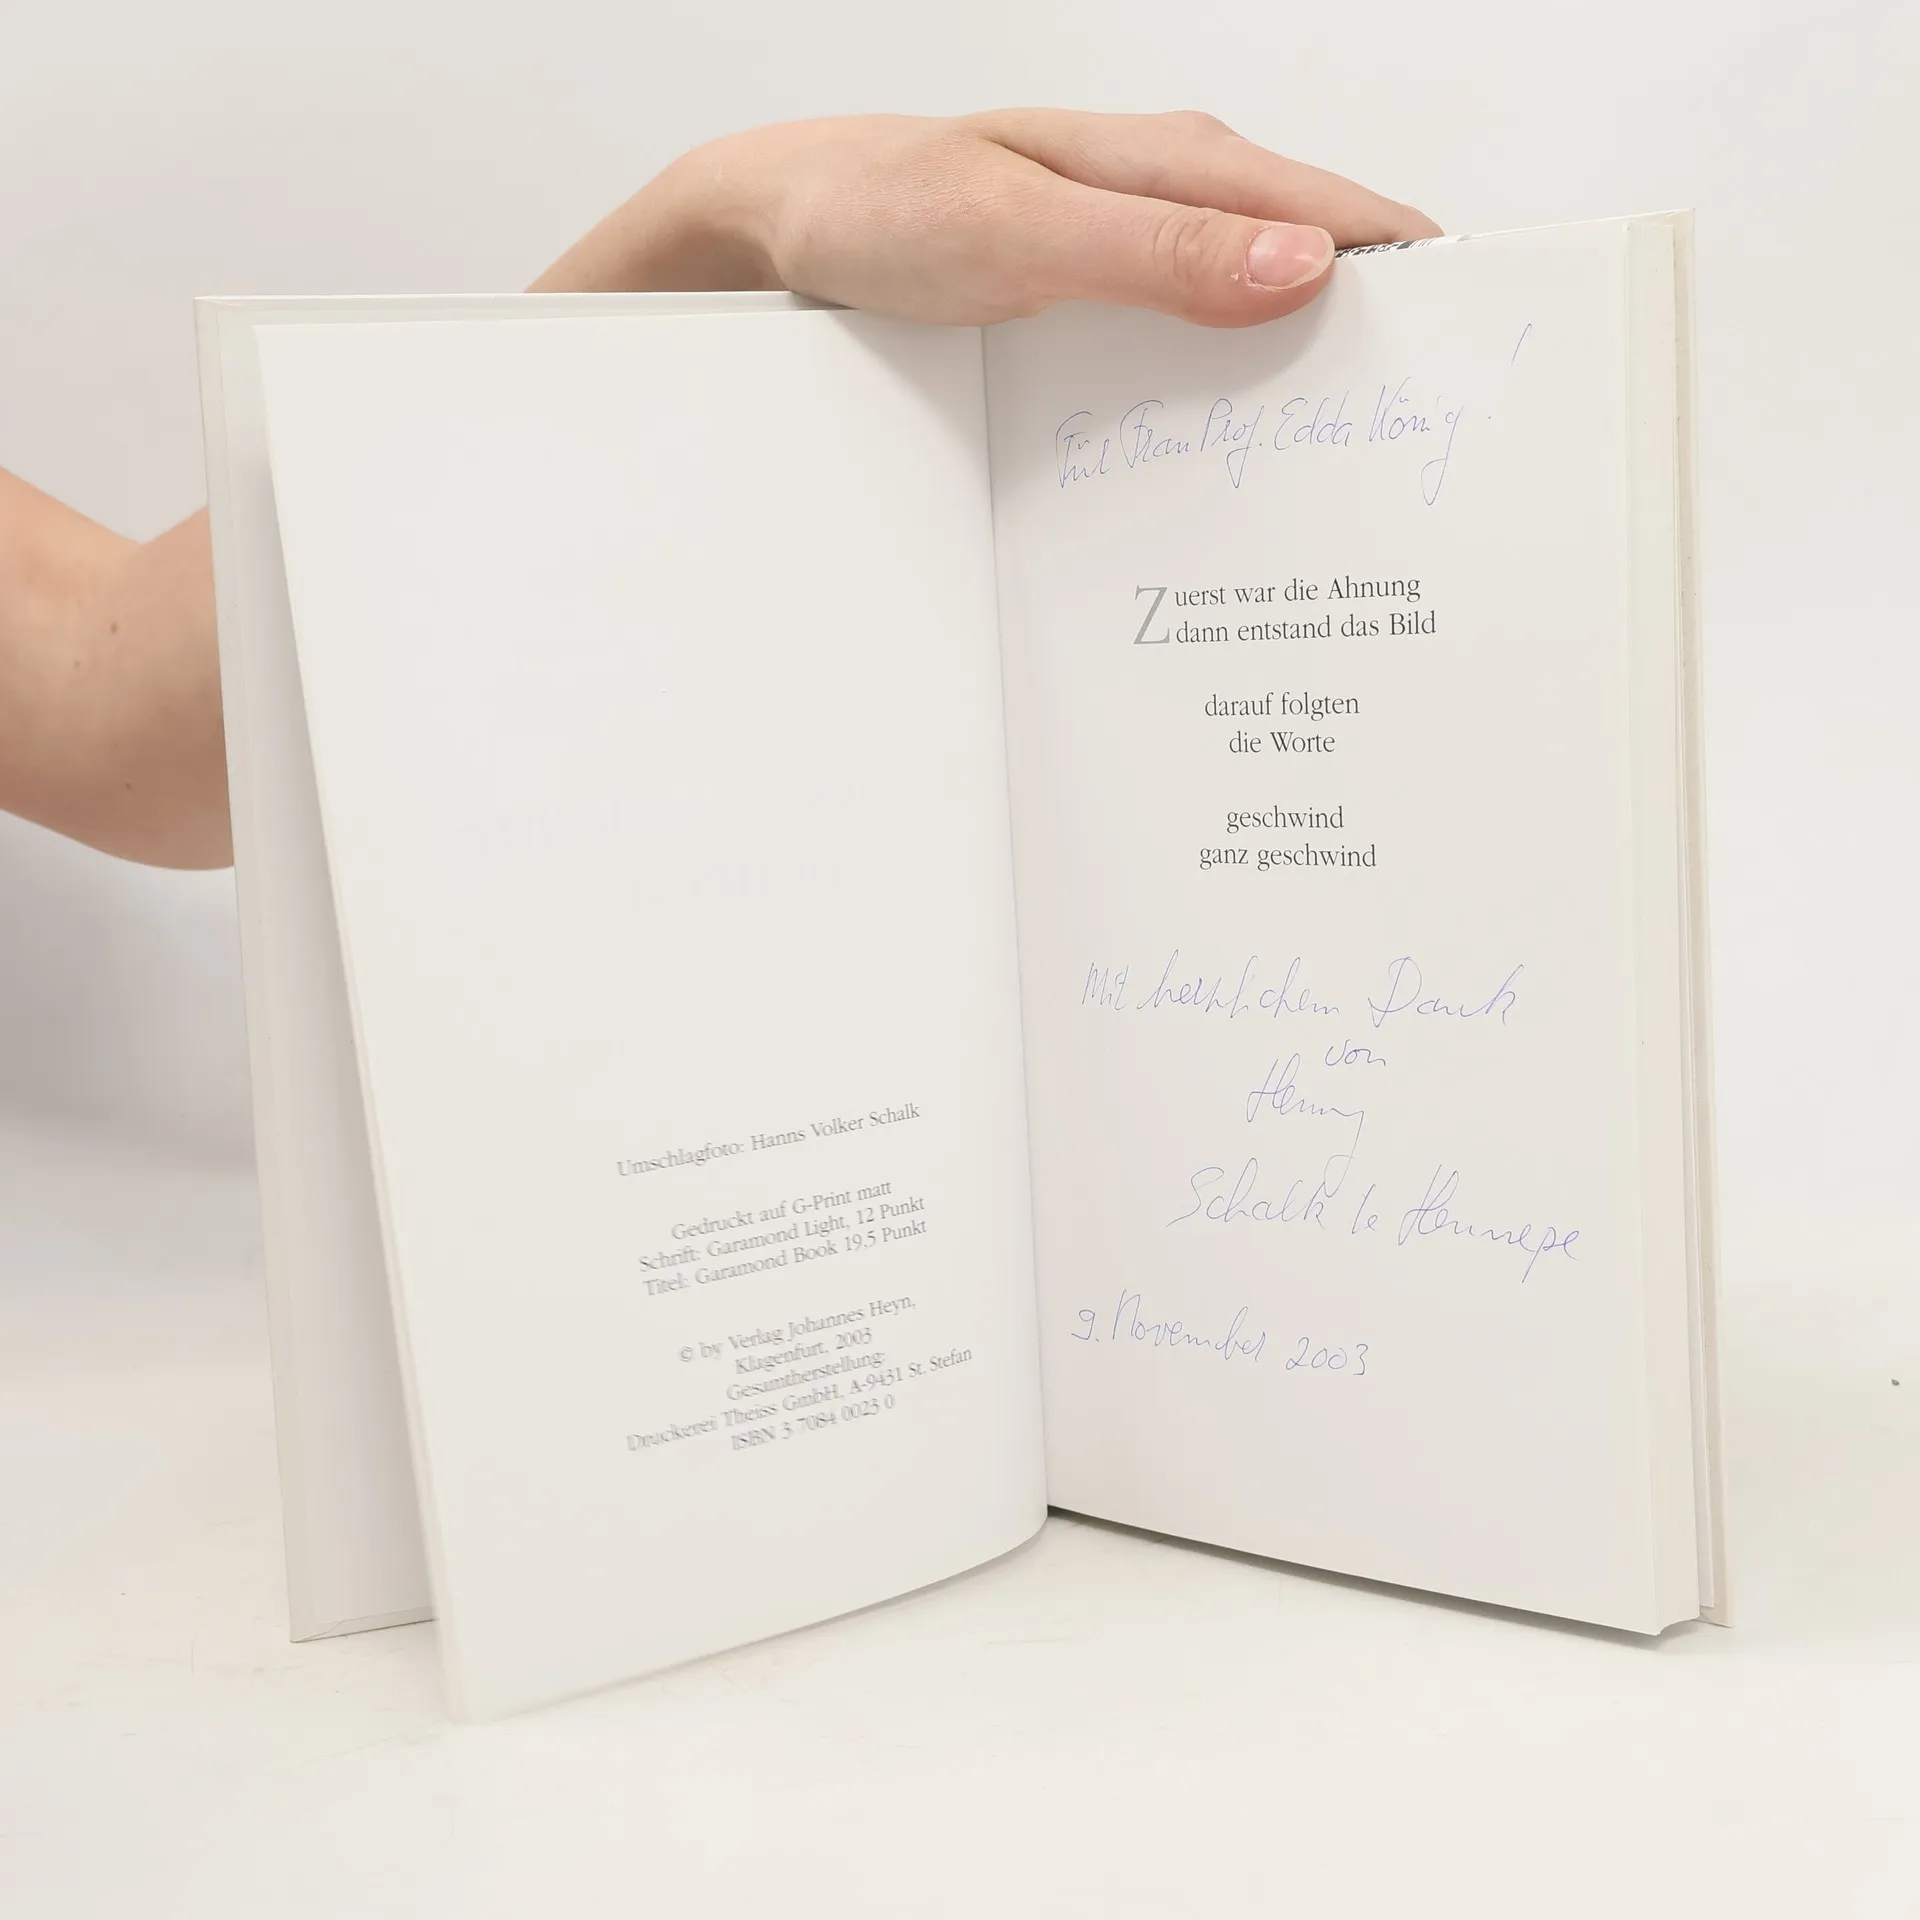 Umschlagfoto: Hanns Volker Schalk
Gedruckt auf G-Print matt
Schrift: Garamond Light, 12 Punkt
Titel: Garamond Book 19,5 Punkt
© by Verlag Johannes Heyn,
Klagenfurt, 2003
Gesamtherstellung:
Druckerei Theiss GmbH, A-9431 St. Stefan
ISBN 3 7084 0023 0
Für Frau Prof. Edda König!
Zuerst war die Ahnung
dann entstand das Bild
darauf folgten
die Worte
geschwind
ganz geschwind
Mit herzlichem Dank
von
Henny
Schalk le Hennepe
9. November 2003